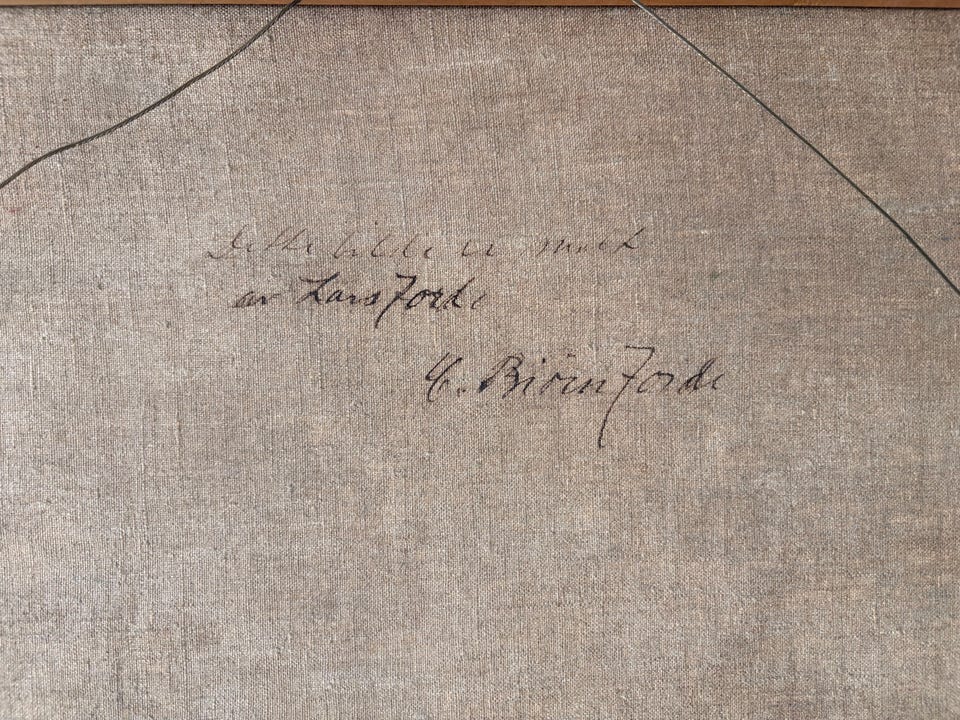 Dette bilde er malt
av Lars Jorde
E. Biörn Jorde